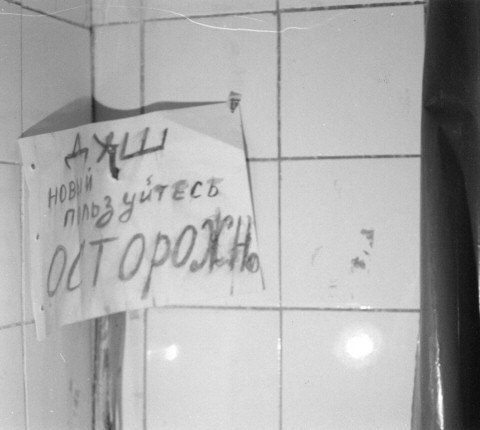 ДУШ
НОВЫЙ
ПОЛЬЗУЙТЕСЬ
ОСТОРОЖНО